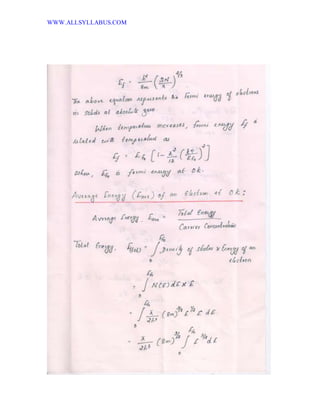 WWW.ALLSYLLABUS.COM
E_f = h²/8m (3N/π)^(2/3)
The above equation represents the Fermi energy of electrons
in solids at absolute zero.
When temperature increases, Fermi energy E_f is
related with temperature as
E_f = E_f0 [1 - π²/12 (kT/E_f0)²]
where, E_f0 is fermi energy at 0k.
Average Energy (E_ave) of an Electron at 0k:
Average Energy, E_ave = Total Energy / Carrier Concentration
Total Energy, = ∫ Density of states x Energy of an electron
= ∫ N(E) dE x E
= ∫ π/2h³ (8m)^(3/2) E^(1/2) E dE
= π/2h³ (8m)^(3/2) ∫ E^(3/2) dE